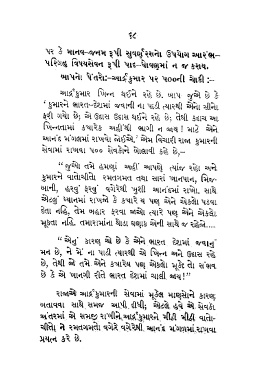 ૬૮
પર કે માનવ-જનમ રૂપી સુવર્ણરસનો ઉપયોગ આરંભ-
પરિગ્રહ વિષયસેવન રૂપી પાદ-ધોવણમાં ન જ કરાય.
બાપનો પૈંતરો:-આર્દ્રકુમાર પર ૫૦૦ની ચોકી :-
આર્દ્રકુમાર ખિન્ન થઈને રહે છે. બાપ જુએ છે કે
‘ કુમારને ભારત-દેશમાં જવાની ના પાડી ત્યારથી એનો સીનો
ફરી ગયો છે; એ ઉદાસ ઉદાસ થઈને રહે છે; તેથી કદાચ આ
ખિન્નતામાં ક્યારેક અહીંથી ભાગી ન જાય ! માટે એને
આનંદ મંગળમાં રાખવો જોઈએ.’ એમ વિચારી રાજા કુમારની
સેવામાં રાખવા ૫૦૦ સેવકોને બોલાવી કહે છે,–
“ જુઓ તમે હમણાં અહીં આપણે ત્યાંજ રહો અને
કુમારને વાતોચીતો રમતગમત તથા સારાં ખાનપાન, મિજ-
બાની, હરવું ફરવું વગેરેથી ખુશી આનંદમાં રાખો, સાથે
એટલું ધ્યાનમાં રાખજો કે ક્યારે ય પણ એને એકલો પડવા
દેતા નહિ, તેમ બહાર ફરવા જાય ત્યારે પણ એને એકલો
મૂકતા નહિ. તમારામાંના થોડા ઘણા એની સાથે જ રહેજો....
“ એનું કારણ એ છે કે એને ભારત દેશમાં જવાનું
મન છે, ને મેં ના પાડી ત્યારથી એ ખિન્ન અને ઉદાસ રહે
છે, તેથી જો તમે એને ક્યારેય પણ એકલો મૂકો તો સંભવ
છે કે એ ખાનગી રીતે ભારત દેશમાં ચાલી જાય !”
રાજાએ આર્દ્રકુમારની સેવામાં મૂકેલ માણસોને કારણ
બતાવવા સાથે સમજ આપી દીધી; એટલે હવે એ સેવકો
અંતરમાં એ સમજી રાખીને આર્દ્રકુમારને મીઠી મીઠી વાતો-
ચીતો ને રમતગમતો વગેરે વગેરેથી આનંદ મંગળમાં રાખવા
પ્રયત્ન કરે છે.